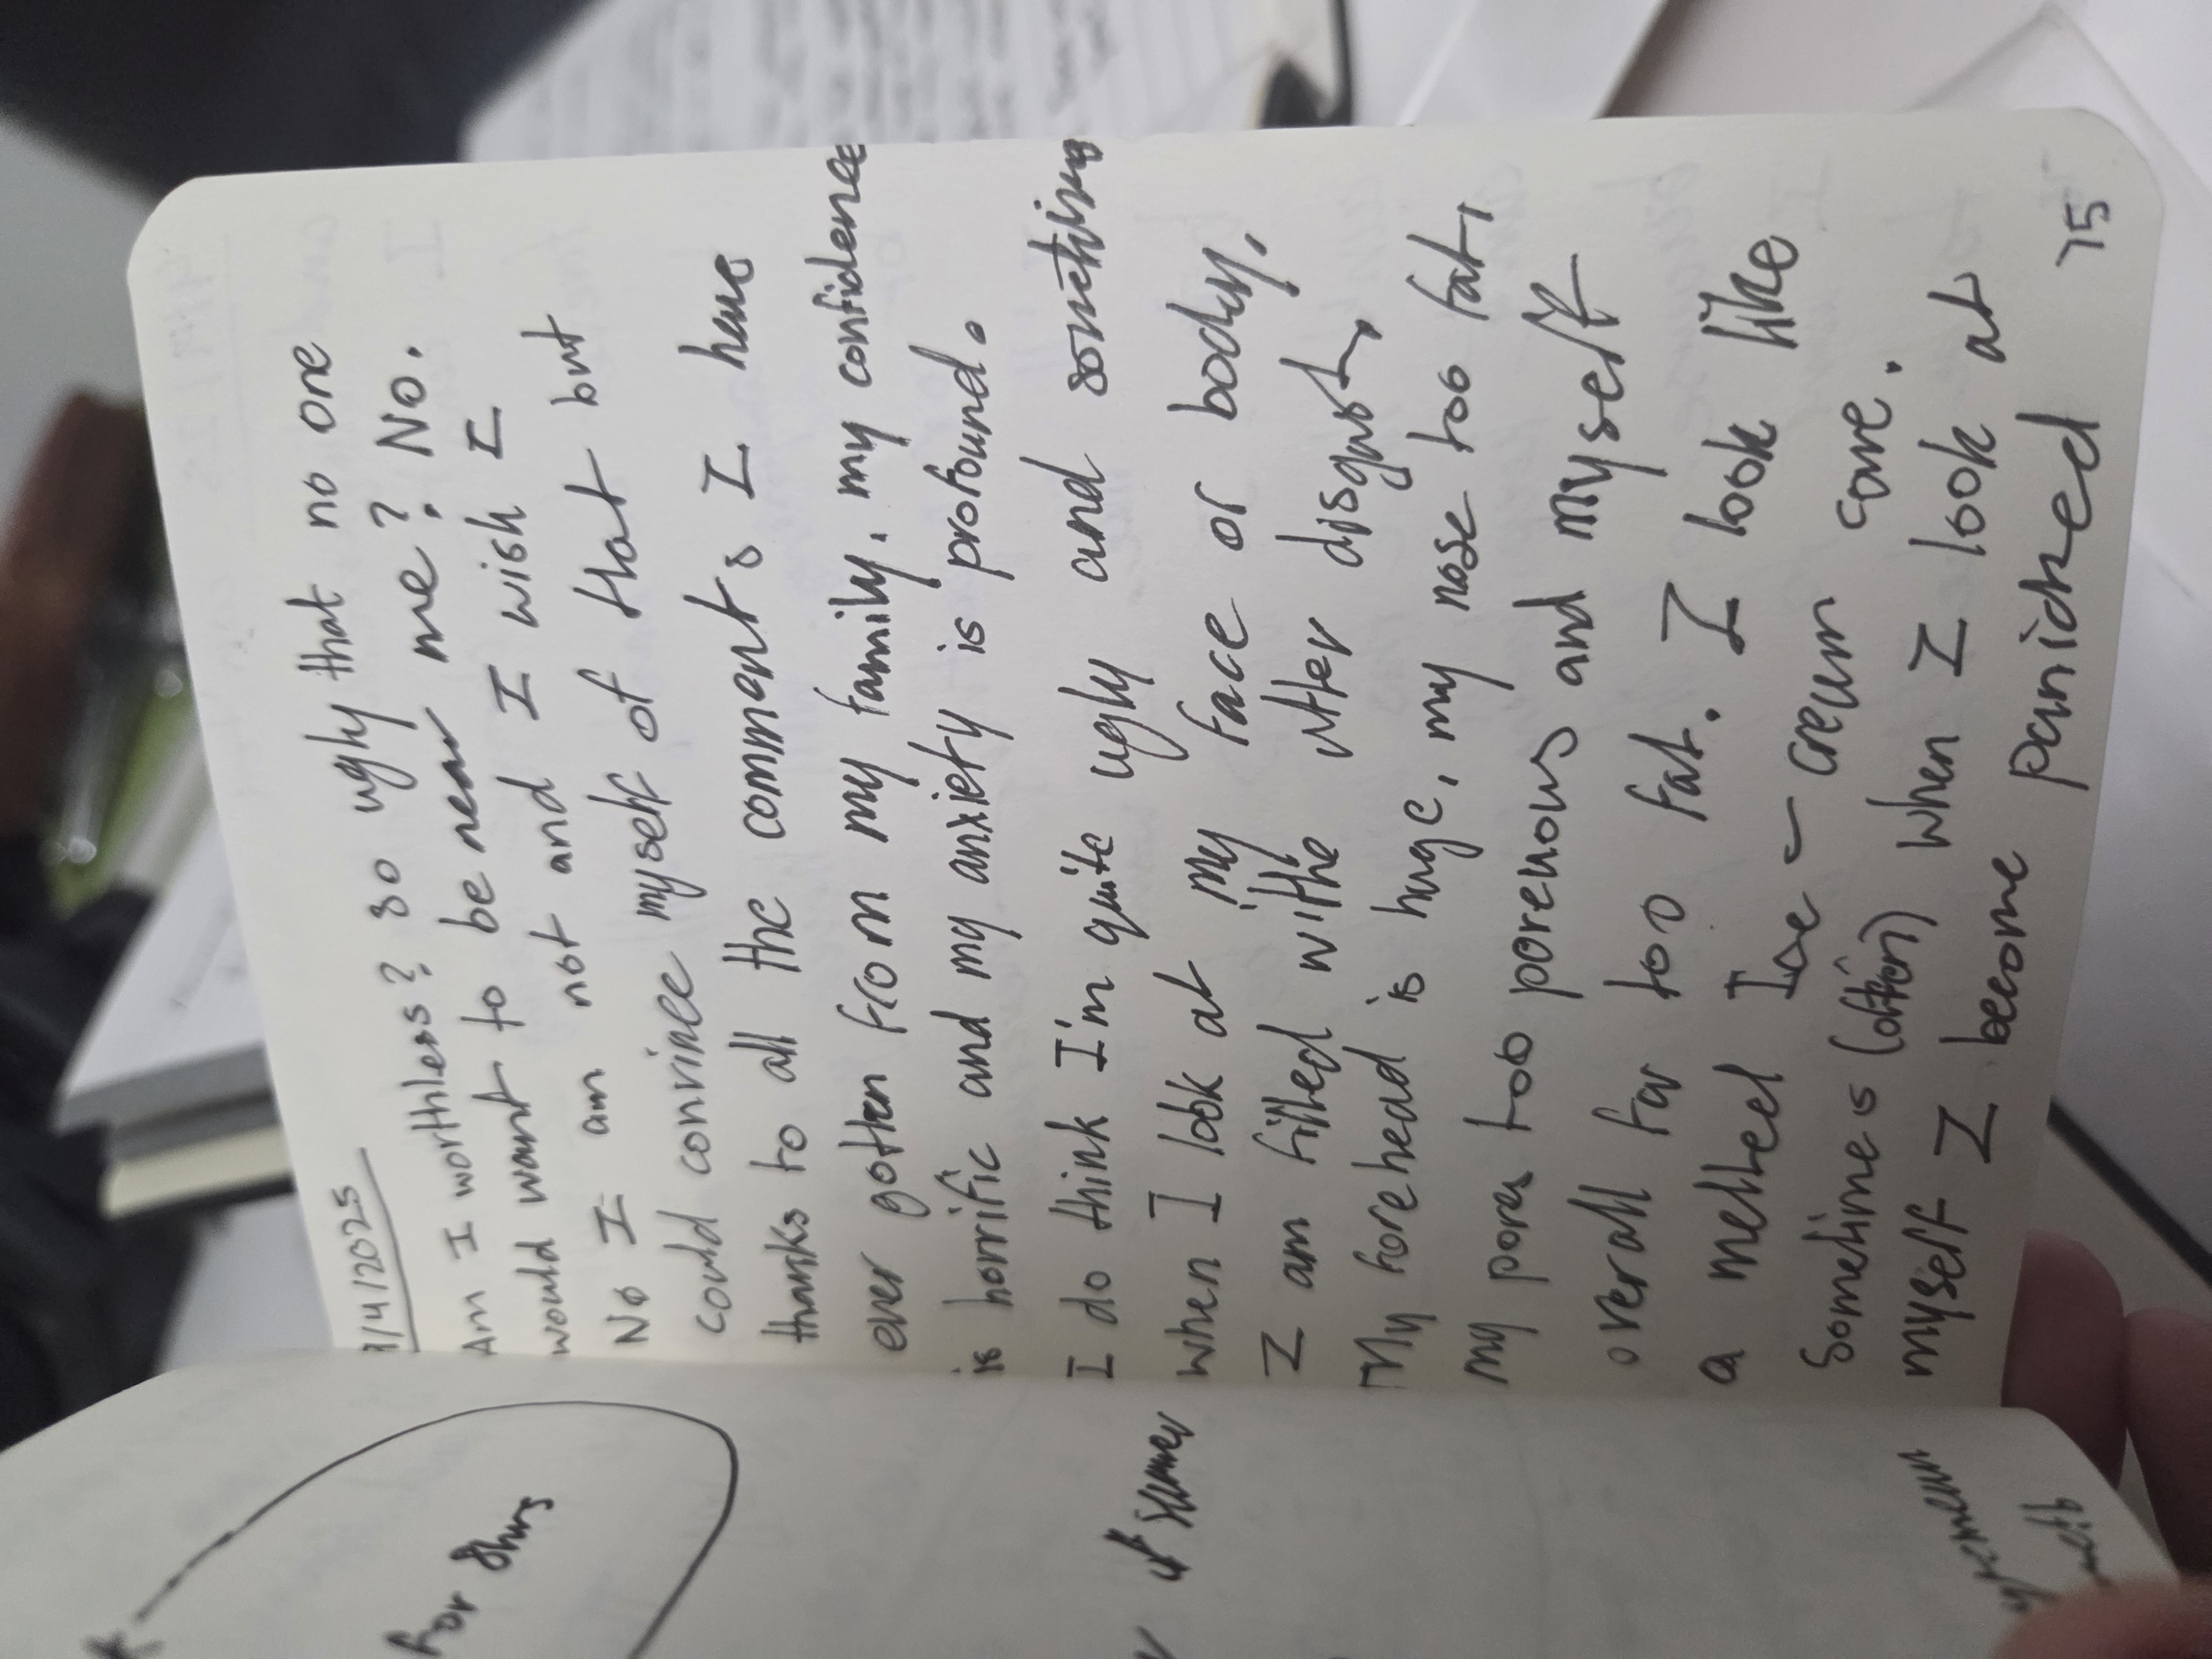 9/4/2025
Am I worthless? so ugly that no one
would want to be near me? No.
No I am not and I wish I
could convince myself of that but
thanks to all the comments I have
ever gotten from my family. my confidence
is horrific and my anxiety is profound.
I do think I'm quite ugly and sometimes
when I look at my face or body,
I am filled withe utter disgust,
My forehead is huge, my nose too fat,
my pores too porenous and myself
overall far too fat. I look like
a melted Ice-cream cone.
Sometimes (often) when I look at
myself I become panicked
75
for